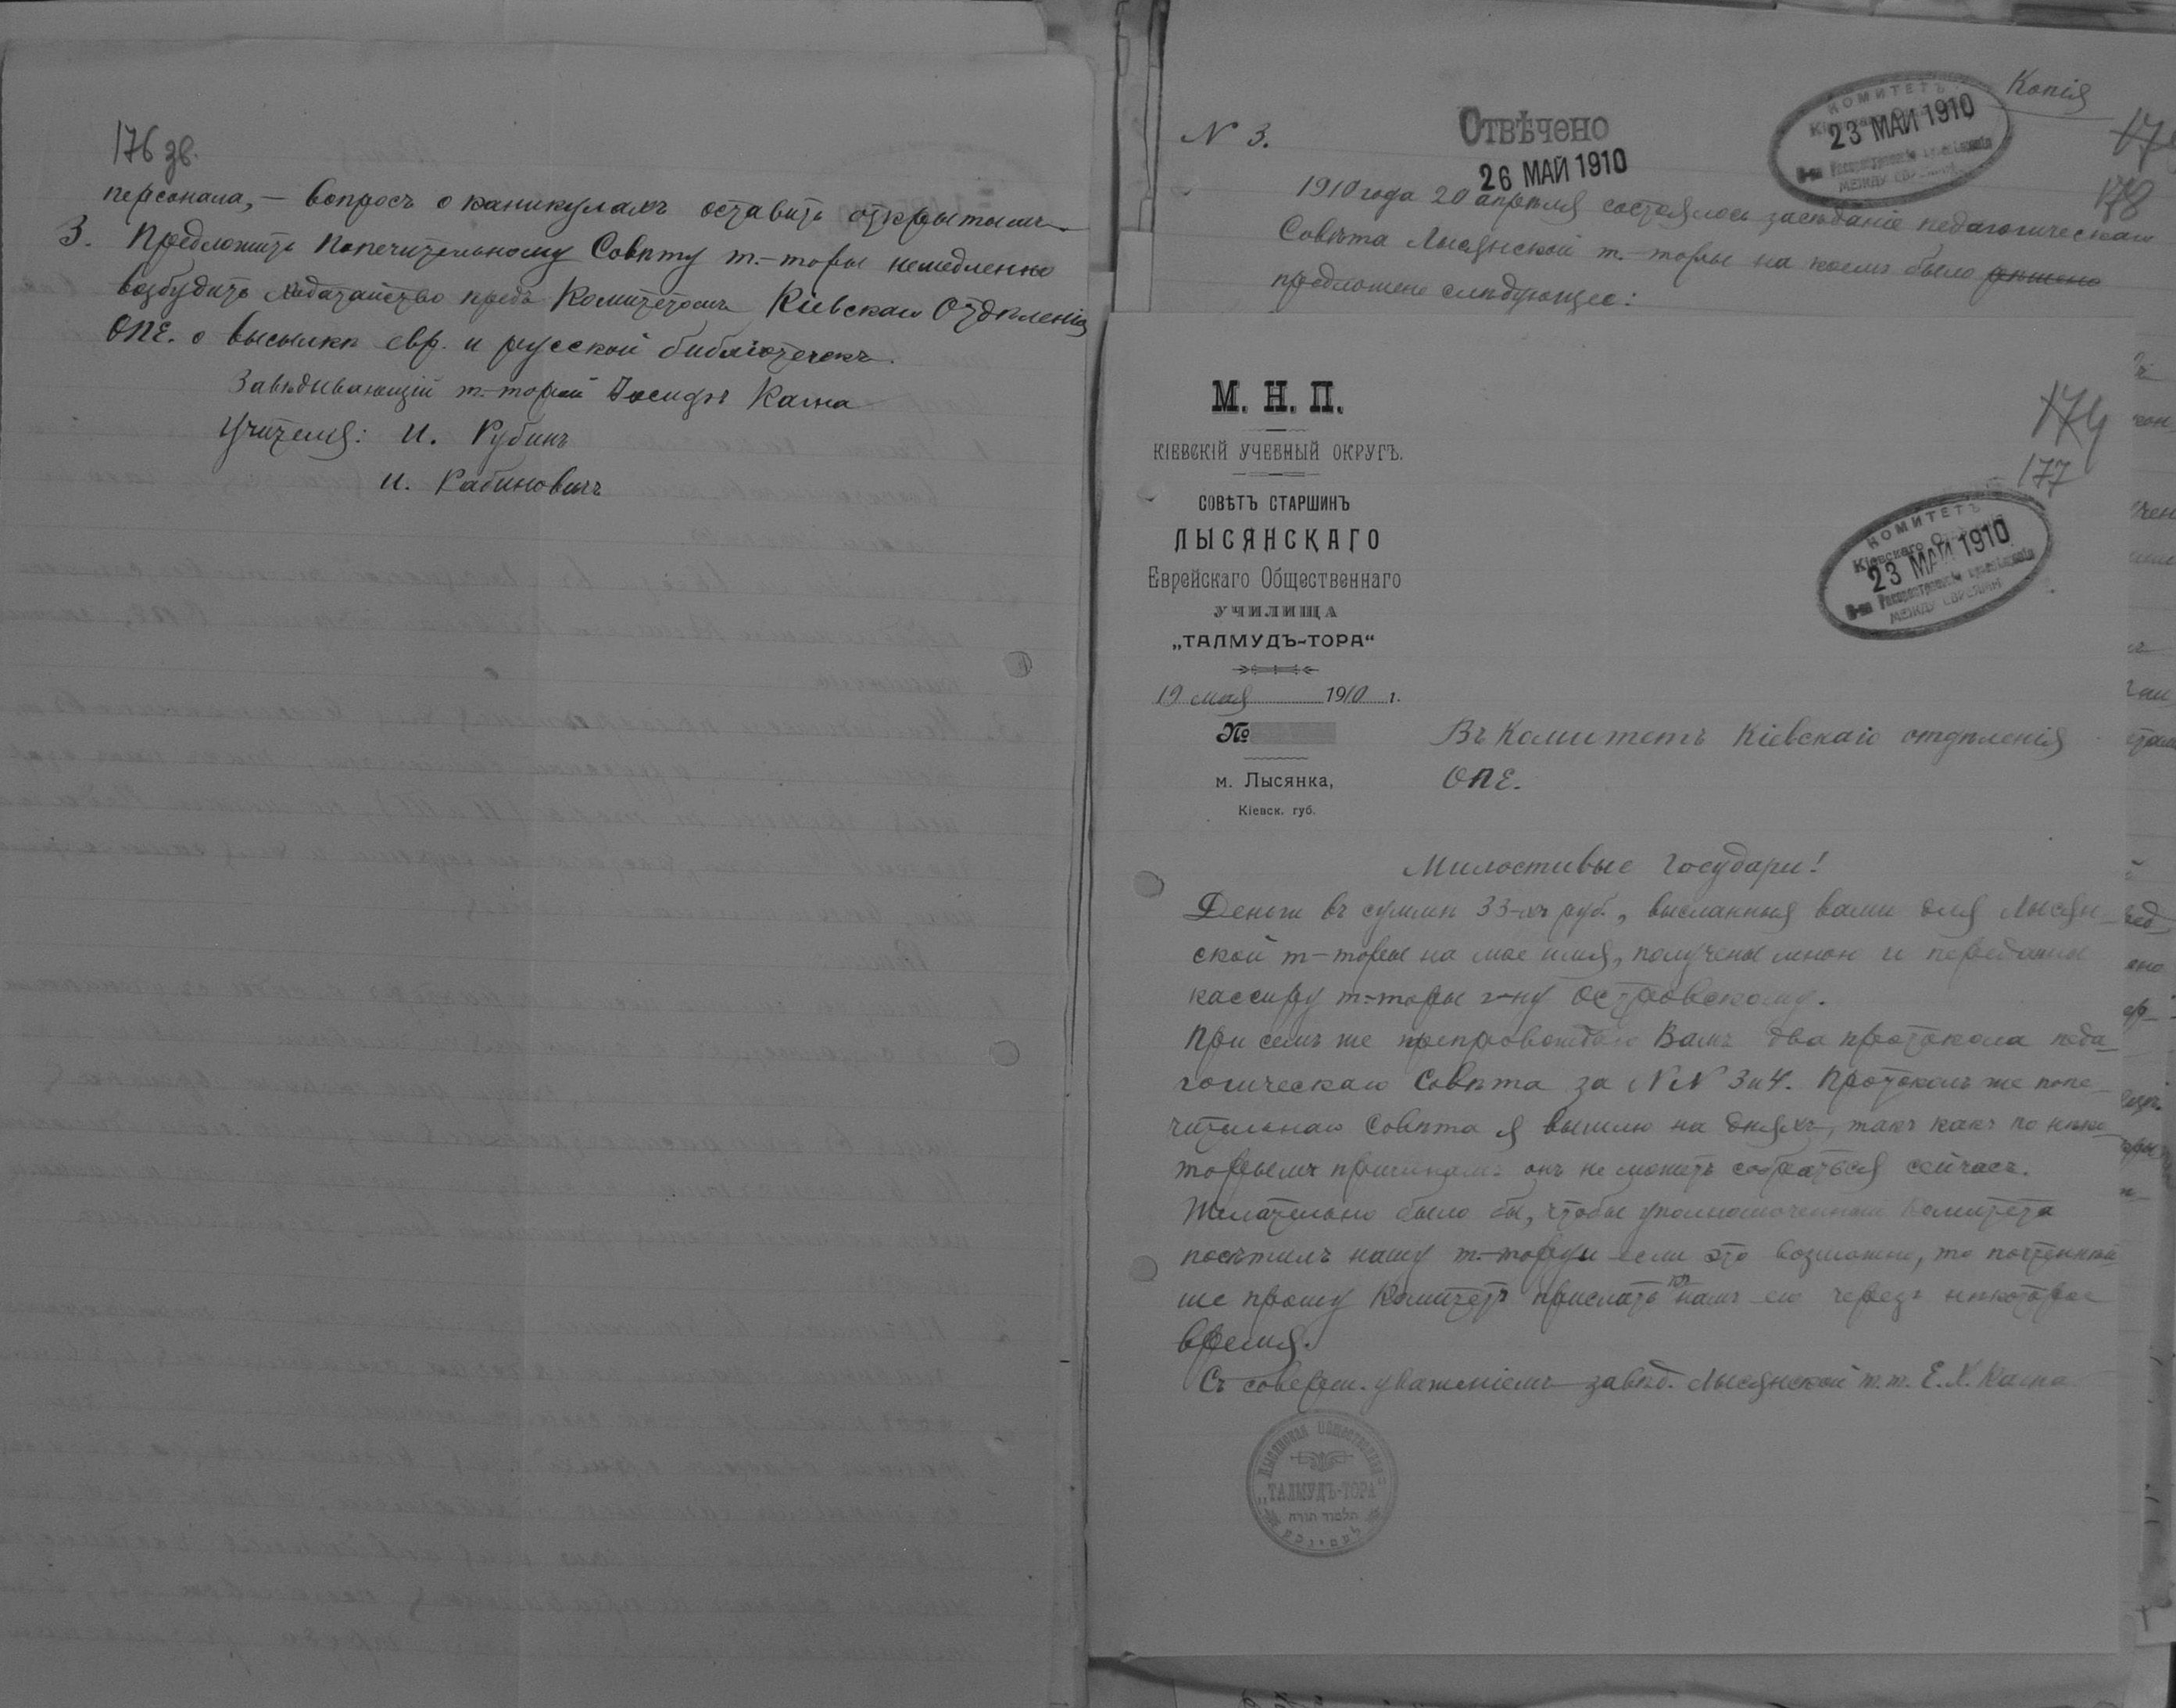 176 зв.
персонала, — вопросъ о каникулахъ оставить открытымъ.
3. Предложить Попечительному Совѣту т.-торы немедленно
возбудить ходатайство предъ Комитетомъ Кіевскаго Отдѣленія
ОПЕ. о высылкѣ евр. и русской библіотекъ.
Завѣдывающій т-торой Іосифъ Кагна
Учителя: И. Рубинъ
И. Рабиновичъ
Копія
N 3.
Отвѣчено
26 МАЙ 1910
КОМИТЕТЪ
23 МАЙ 1910
О-ва Распространенія просвѣщенія
МЕЖДУ ЕВРЕЯМИ
178
1910 года 20 апрѣля состоялось засѣданіе педагогическаго
Совѣта Лысянской т.-торы на коемъ было рѣшено
предложено слѣдующее:
М. Н. П.
КІЕВСКІЙ УЧЕБНЫЙ ОКРУГЪ.
СОВѢТЪ СТАРШИНЪ
ЛЫСЯНСКАГО
Еврейскаго Общественнаго
УЧИЛИЩА
„ТАЛМУДЪ-ТОРА“
19 мая 1910 г.
№
м. Лысянка,
Кіевск. губ.
174
177
КОМИТЕТЪ
Кіевскаго
23 МАЙ 1910
О-ва Распространенія просвѣщенія
МЕЖДУ ЕВРЕЯМИ
Въ Комитетъ Кіевскаго отдѣленія
ОПЕ.
Милостивые Государи!
Деньги въ суммѣ 33-хъ руб., высланныя вами для Лысян-
ской т-торы на мое имя, получены мною и переданы
кассиру т-торы г-ну Островскому.
При семъ же препровождаю Вамъ два протокола педа-
гогическаго Совѣта за NN 3 и 4. Протоколъ же попе-
чительнаго Совѣта я вышлю на дняхъ, такъ какъ по нѣко-
торымъ причинамъ онъ не можетъ собраться сейчасъ.
Желательно было бы, чтобы уполномоченный Комитета
посѣтилъ нашу т.-тору и если это возможно, то почтеннѣй-
ше прошу Комитетъ прислать къ намъ его черезъ нѣкоторое
время.
Съ соверш. уваженіемъ завѣд. Лысянской т.т. Е. Х. Кагна
ЛЫСЯНСКАЯ ОБЩЕСТВЕННАЯ
„ТАЛМУДЪ-ТОРА“
תלמוד תורה